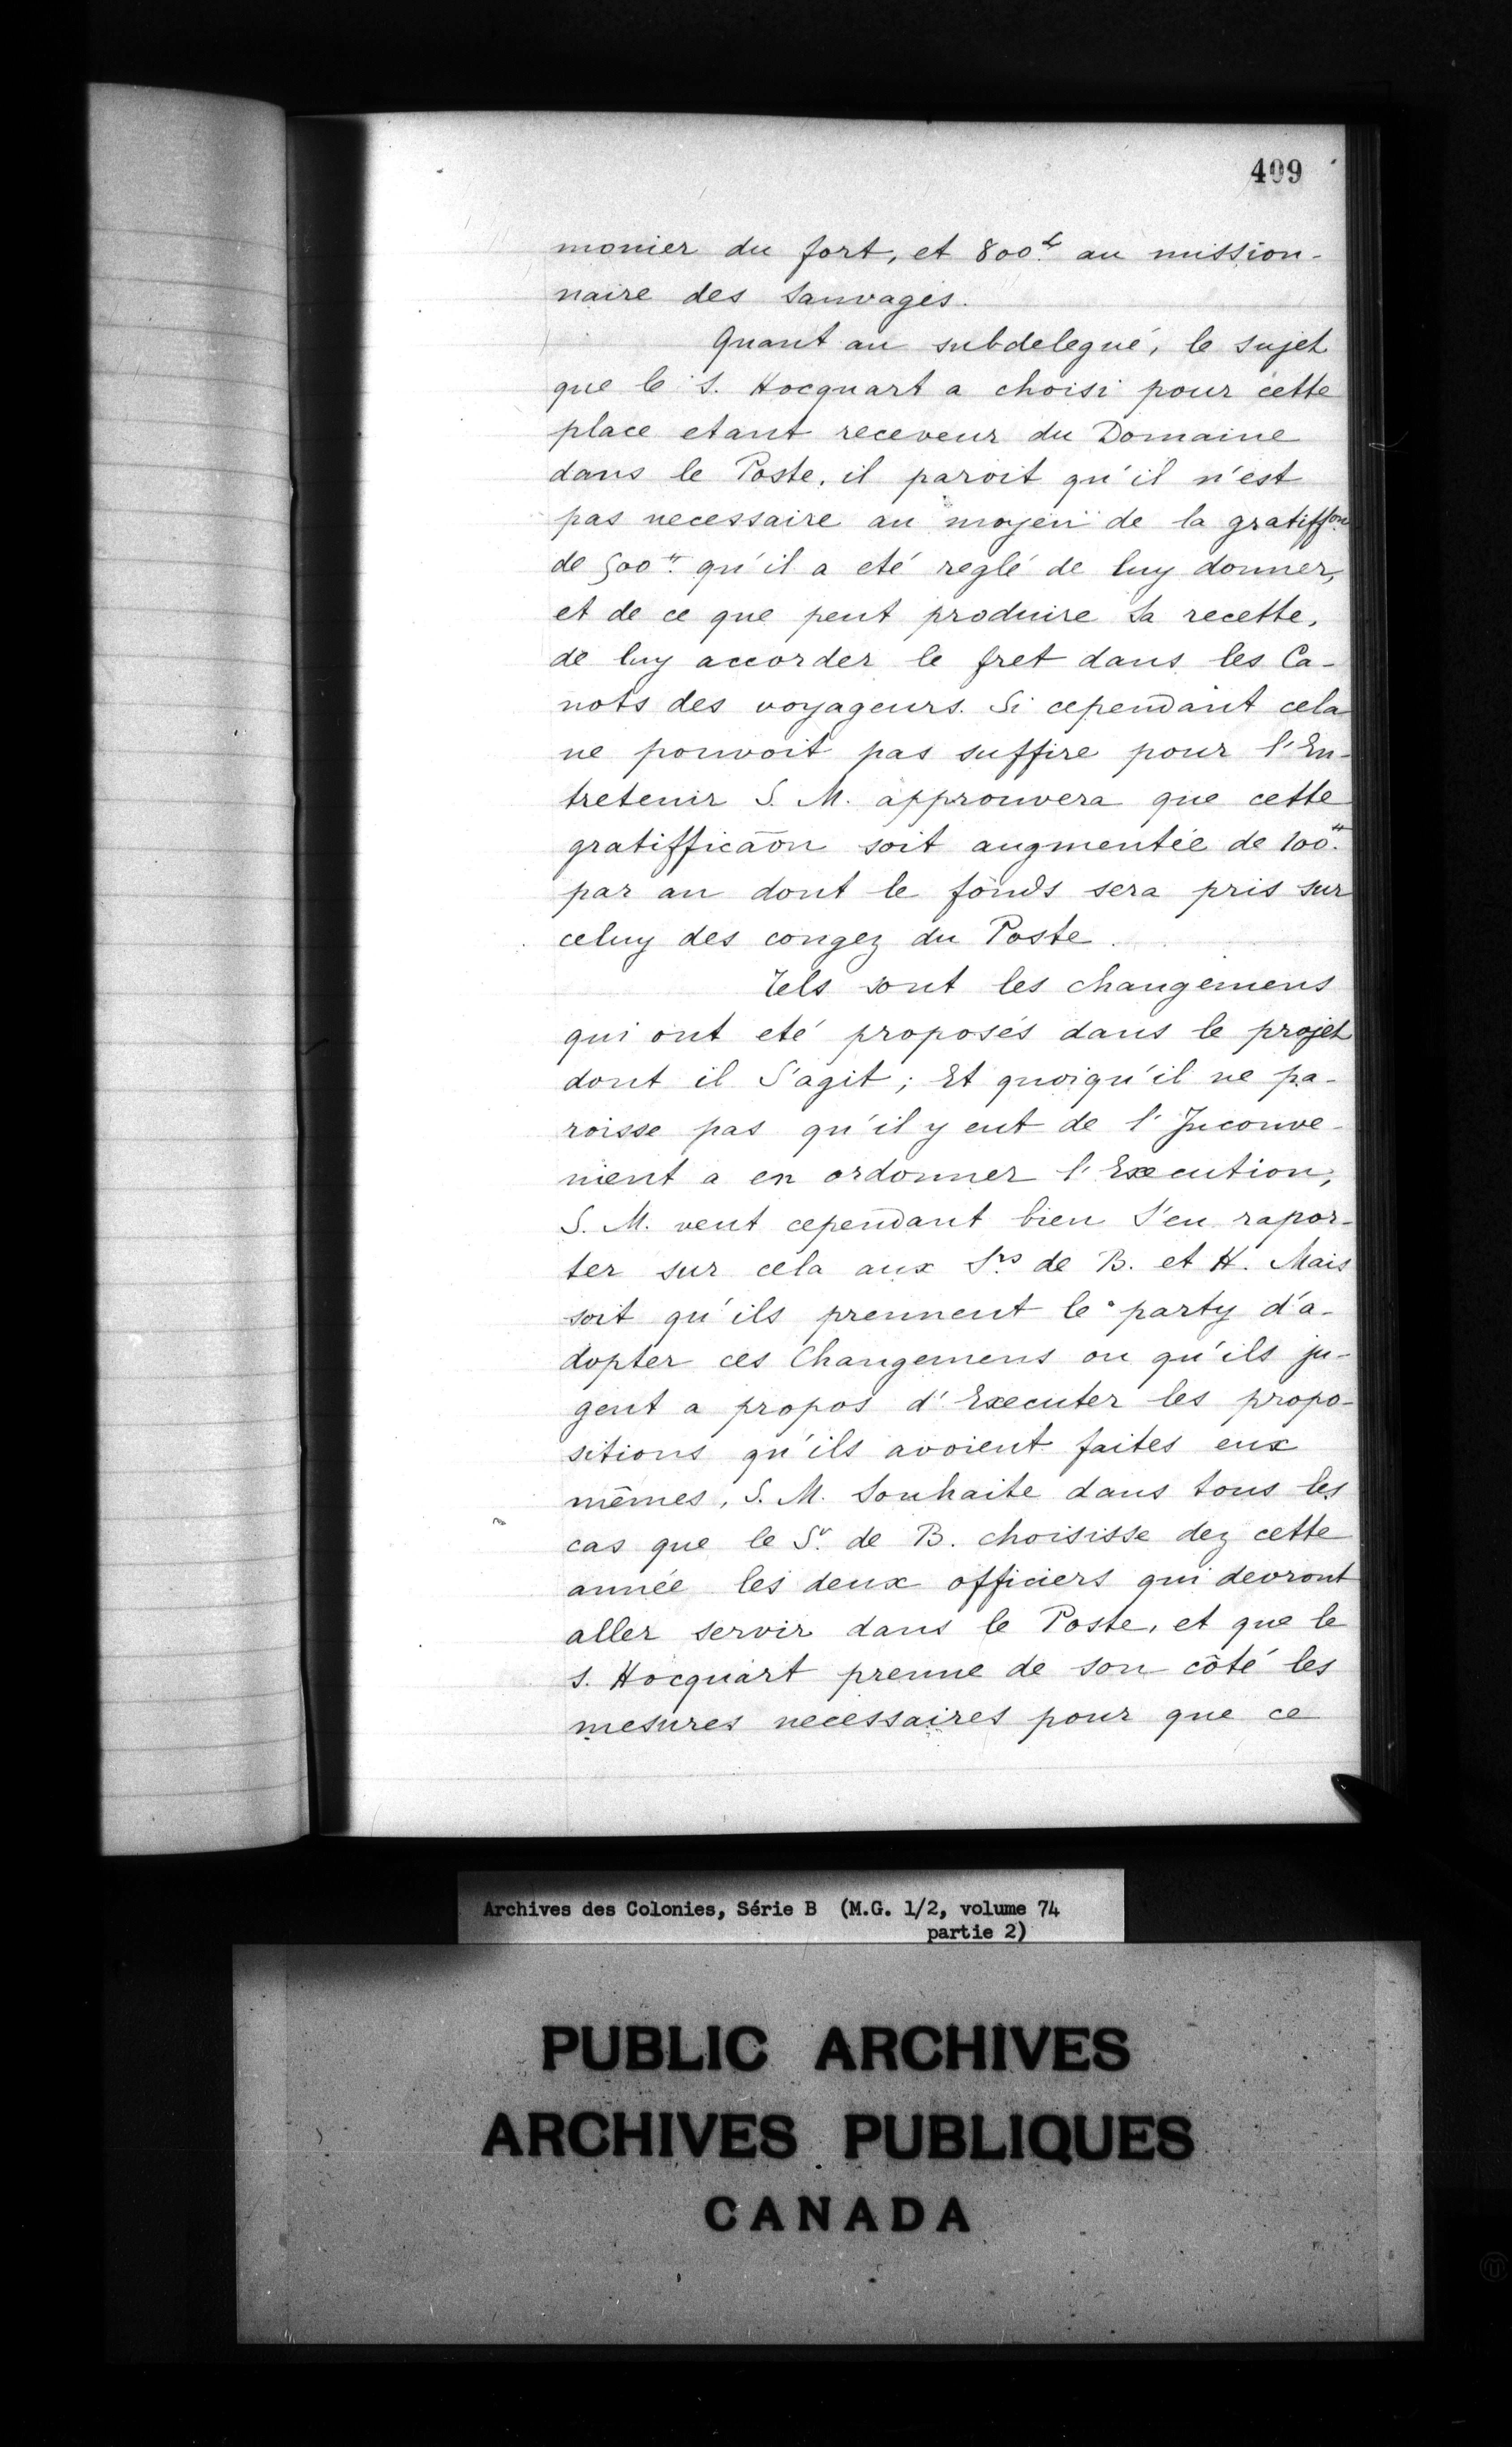 409
monier du fort, et 800ᵗᵗ au mission-
naire des Sauvages.
Quant au subdelegué, le sujet
que le S. Hocquart a choisi pour cette
place etant receveur du Domaine
dans le Poste, il paroit qu'il n'est
pas necessaire au moyen de la gratiffon
de 500ᵗᵗ qu'il a eté reglé de luy donner,
et de ce que peut produire Sa recette,
de luy accorder le fret dans les Ca-
nots des voyageurs. Si cependant cela
ne pouvoit pas suffire pour l'En-
tretenir S. M. approuvera que cette
gratifficaōn soit augmentée de 100ᵗᵗ
par an dont le fonds sera pris sur
celuy des congez du Poste.
Tels sont les changemens
qui ont eté proposés dans le projet
dont il S'agit; Et quoiqu'il ne pa-
roisse pas qu'il y eut de l'Inconve-
nient a en ordonner l'Execution,
S. M. veut cependant bien S'en rapor-
ter sur cela aux Srs de B. et H. Mais
soit qu'ils prennent le party d'a-
dopter ces Changemens ou qu'ils ju-
gent a propos d'Executer les propo-
sitions qu'ils avoient faites eux
mêmes, S. M. Souhaite dans tous les
cas que le Sr. de B. choisisse dez cette
année les deux officiers qui devront
aller servir dans le Poste, et que le
S. Hocquart prenne de son côté les
mesures necessaires pour que ce
Archives des Colonies, Série B (M.G. 1/2, volume 74
partie 2)
PUBLIC ARCHIVES
ARCHIVES PUBLIQUES
CANADA